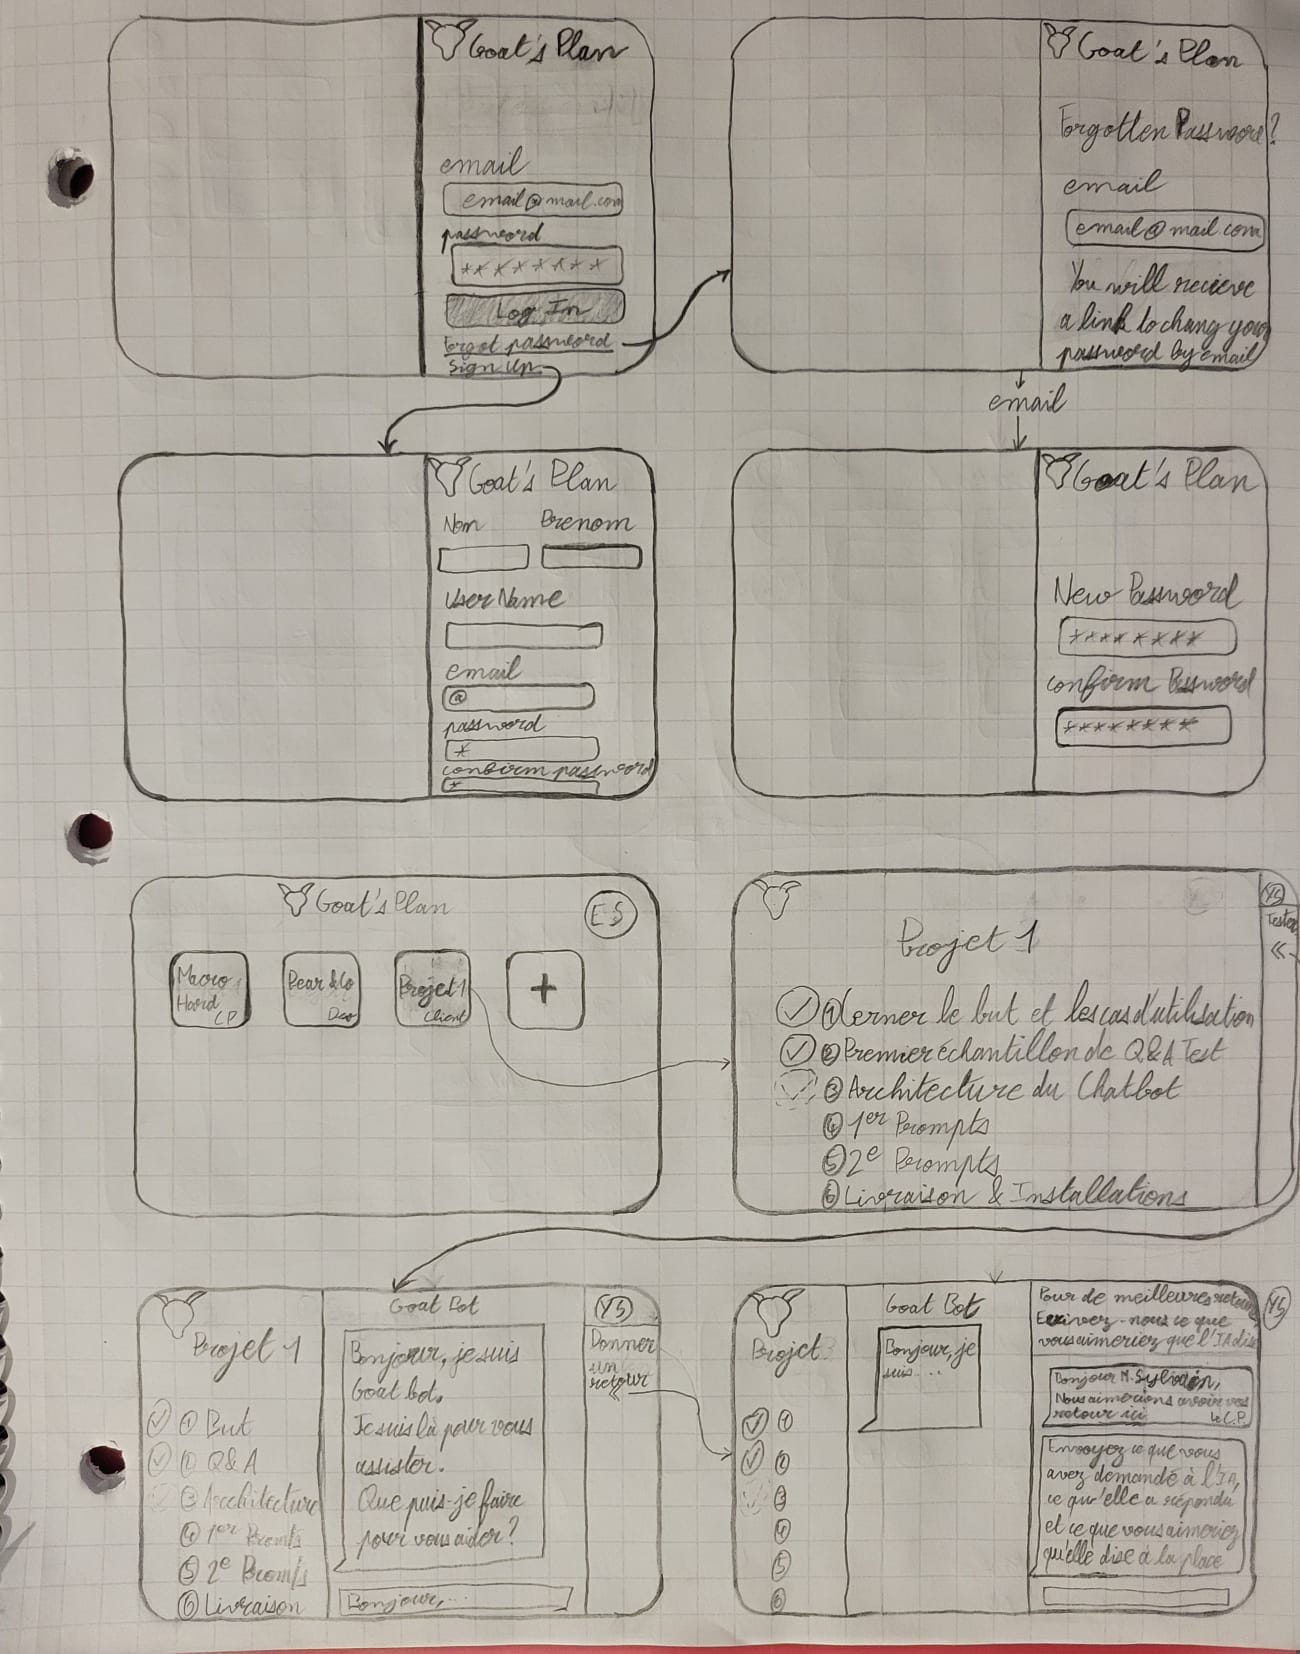 Goat's Plan
email
email@mail.com
password
********
Log In
Forgot password
Sign Up
Goat's Plan
Forgotten Password?
email
email@mail.com
You will recieve
a link to chang your
password by email
email
Goat's Plan
Nom Prenom
UserName
email
@
password
*
confirm password
*
Goat's Plan
New Password
********
confirm Password
********
Goat's Plan
ES
Macro
Hard
CP
Pear &Co
Dev
Projet 1
Client
+
YS
Tester
«
Projet 1
① Cerner le but et les cas d'utilisation
② Premier échantillon de Q&A Test
③ Architecture du Chatbot
④ 1er Prompts
⑤ 2e Prompts
⑥ Livraison & Installations
Projet 1
① But
Q&A
③ Architecture
④ 1er Prompts
⑤ 2e Prompts
⑥ Livraison
Goat Bot
Bonjour, je suis
Goat bot.
Je suis là pour vous
assister.
Que puis-je faire
pour vous aider?
Bonjour,...
YS
Donner
un
retour
«
Projet
①
②
③
④
⑤
⑥
Goat Bot
Bonjour, je
suis....
YS
Pour de meilleures retours
Ecrivez-nous ce que
vous aimeriez que l'IA dise
Bonjour M. Sylvain,
Nous aimerions avoir vos
retour ici
Le C.P.
Envoyez ce que vous
avez demandé à l'IA,
ce qu'elle a répondu
et ce que vous aimeriez
qu'elle dise à la place